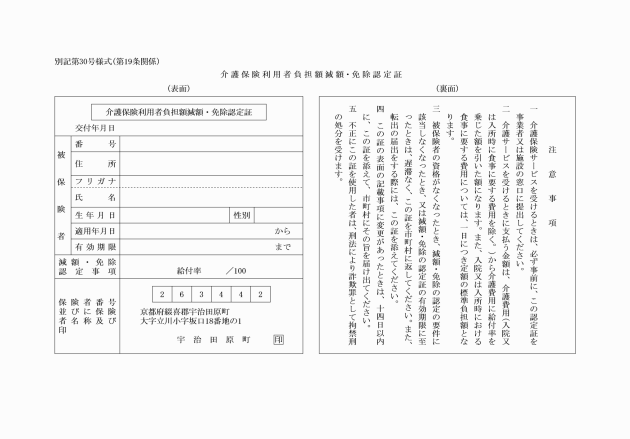 別記第30号様式(第19条関係)
介護保険利用者負担額減額・免除認定証
(表面)
介護保険利用者負担額減額・免除認定証
交付年月日
被保険者
番号
住所
フリガナ
氏名
生年月日
性別
適用年月日
から
有効期限
まで
減額・免除
認定事項
給付率 /100
保険者番号
並びに保険
者名称及び
印
263442
京都府綴喜郡宇治田原町
大字立川小字坂口18番地の1
宇治田原町 印
(裏面)
注意事項
一 介護保険サービスを受けるときは、必ず事前に、この認定証を
事業者又は施設の窓口に提出してください。
二 介護サービスを受けるときに支払う金額は、介護費用(入院又
は入所時に食事に要する費用を除く。)から介護費用に給付率を
乗じた額を引いた額になります。また、入院又は入所時における
食事に要する費用については、一日につき定額の標準負担額とな
ります。
三 被保険者の資格がなくなったとき、減額・免除の認定の要件に
該当しなくなったとき、又は減額・免除の認定証の有効期限に至
ったときは、遅滞なく、この証を市町村に返してください。また、
転出の届出をする際には、この証を添えてください。
四 この証の表面の記載事項に変更があったときは、十四日以内
に、この証を添えて、市町村にその旨を届け出てください。
五 不正にこの証を使用した者は、刑法により詐欺罪として拘禁刑
の処分を受けます。